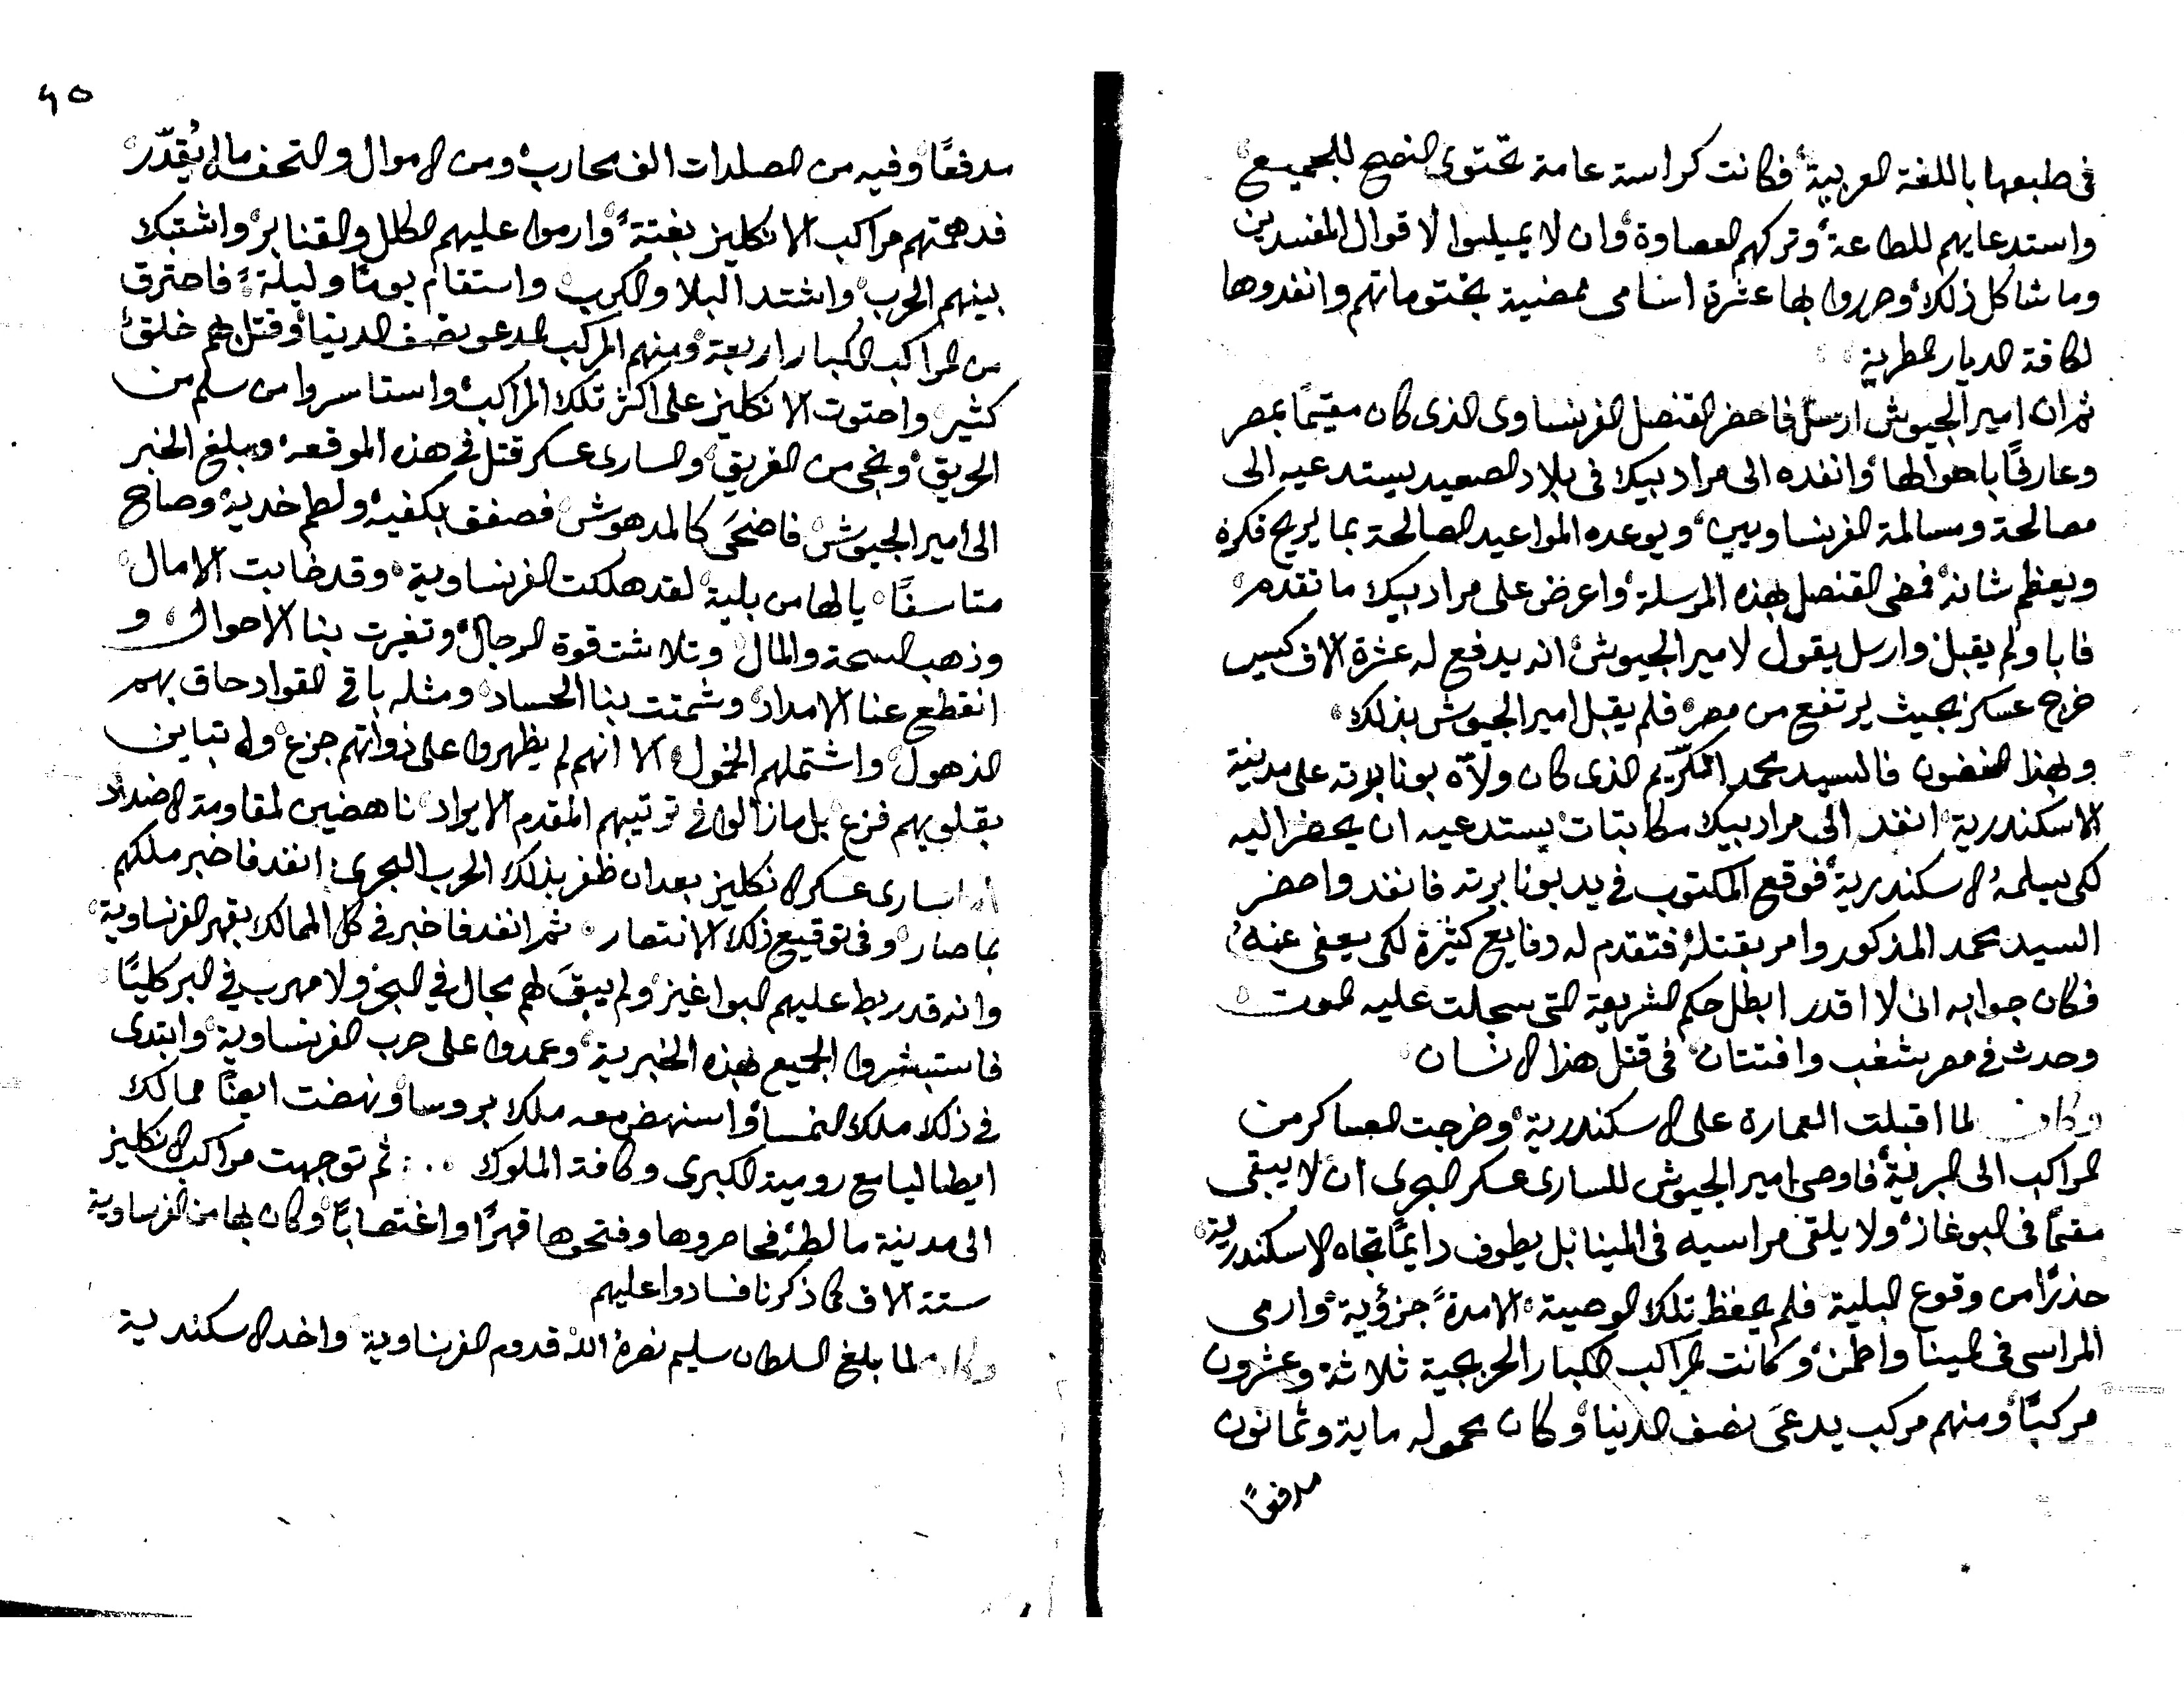 فى طبعها باللغة العربية فكانت كراسة عامة تحتوى النصح للجميع
واستدعايهم للطاعة وتركهم العصاوة وان لا يميلوا لاقوال المفسدين
وما شاكل ذلك وحرروا بها عشرة اسامى ممضية بختوماتهم وانفدوها
لكافة الديار المصرية
ثم ان امير الجيوش ارسل فاحضر القنصل الفرنساوى الذى كان مقيمًا بمصر
وعارفًا باحوالها وانفده الى مراد بيك فى بلاد الصعيد يستدعيه الى
مصالحة ومسالمة الفرنساويين ويوعده المواعيد الصالحة بما يريح فكره
ويعظم شانه فمضى القنصل بهذه المرسلة واعرض على مراد بيك ما تقدم
فابا ولم يقبل وارسل يقول لامير الجيوش انه يدفع له عشرة الاف كيس
خرج عسكره بحيث يرتفع من مصر فلم يقبل امير الجيوش بذلك
وبهذا الغضون فالسيد محمد المكرّيم الذى كان ولاّه بونابرته على مدينة
الاسكندرية انفد الى مراد بيك مكاتبات يستدعيه ان يحضر اليه
لكى يسلمهُ الاسكندرية فوقع المكتوب فى يد بونابرته فانفد واحضر
السيد محمد المذكور وامر بقتله فتقدم له دفايع كثيرة لكى يعفى عنه
فكان جوابه انى لا اقدر ابطل حكم الشريعة التى سجلت عليه الموت
وحدث فى مصر شغب وافتتان فى قتل هذا الانسان
وكان لما اقبلت العمارة على الاسكندرية وخرجت العساكر من
المراكب الى البرية فاوصى امير الجيوش للسارى عسكر البحرى ان لا يبقى
مقيمًا فى البوغاز ولا يلقى مراسيه فى المينا بل يطوف دايمًا تجاه الاسكندرية
حذرًا من وقوع البلية فلم يحفظ تلك الوصية الا مدةً جزؤية وارمى
المراسى فى المينا واطمن وكانت المراكب الكبار الحربجية ثلاثة وعشرون
مركبًا ومنهم مركب يدعىَ نصف الدنيا وكان محموله ماية وثمانون
مدفعًا
٩٥
مدفعًا وفيه من الصلدات الف محارب ومن الاموال والتحف ما لا يُقدّر
فدهمتهم مراكب الانكليز بغتةً وارموا عليهم الكلل والقنابر واشتبك
بينهم الحرب واشتد البلا والكرب واستقام يومًا وليلةً فاحترق
من المراكب الكبار اربعة ومنهم المركب المدعو نصف الدنيا وقتل لهم خلق
كثير واحتوت الانكليز على اكثر تلك المراكب واستاسروا من سلم من
الحريق ونجى من الغريق والسارى عسكر قتل فى هذه الموقعه وبلغ الخبر
الى امير الجيوش فاضحىَ كالمدهوش فصفق بكفيه ولطم خديه وصاح
متاسفًا يا لها من بلية لقد هلكت الفرنساوية وقد خابت الامال
وذهب السحة والمال وتلاشت قوة الرجال وتغيرت بنا الاحوال و
انقطع عنا الامداد وشمتت بنا الحساد ومثله باقى القواد حاق بهم
الذهول واشتملهم الخمول الا انهم لم يظهروا على ذواتهم جزع ولا تباين
بقلوبهم فزع بل مازالوا فى ترتيبهم المقدم الايراد ناهضين لمقاومة الاضداد
اما سارى عسكر الانكليز بعد ان ظفر بذلك الحرب البحرى انفد فاخبر ملكهم
بما صار وفى توقيع ذلك الانتصار ثم انفد فاخبر فى كل الممالك بقهر الفرنساوية
وانه قد ربط عليهم البواغيز ولم يبقَ لهم مجال فى البحر ولا مهرب فى البر كليًا
فاستبشروا الجميع بهذه الخبرية وعمدوا على حرب الفرنساوية وابتدى
فى ذلك ملك النمسا واسنهض معه ملك بروسا ونهضت ايضًا ممالك
ايطاليا مع رومية الكبرى وكافة الملوك ثم توجهت مراكب الانكليز
الى مدينة مالطه فحاصروها وفتحوها قهرًا واغتصابًا وكان بها من الفرنساوية
ستة الاف كما ذكرنا فسادوا عليهم
وكان لما بلغ السلطان سليم نصرهُ الله قدوم الفرنساوية واخد الاسكندرية